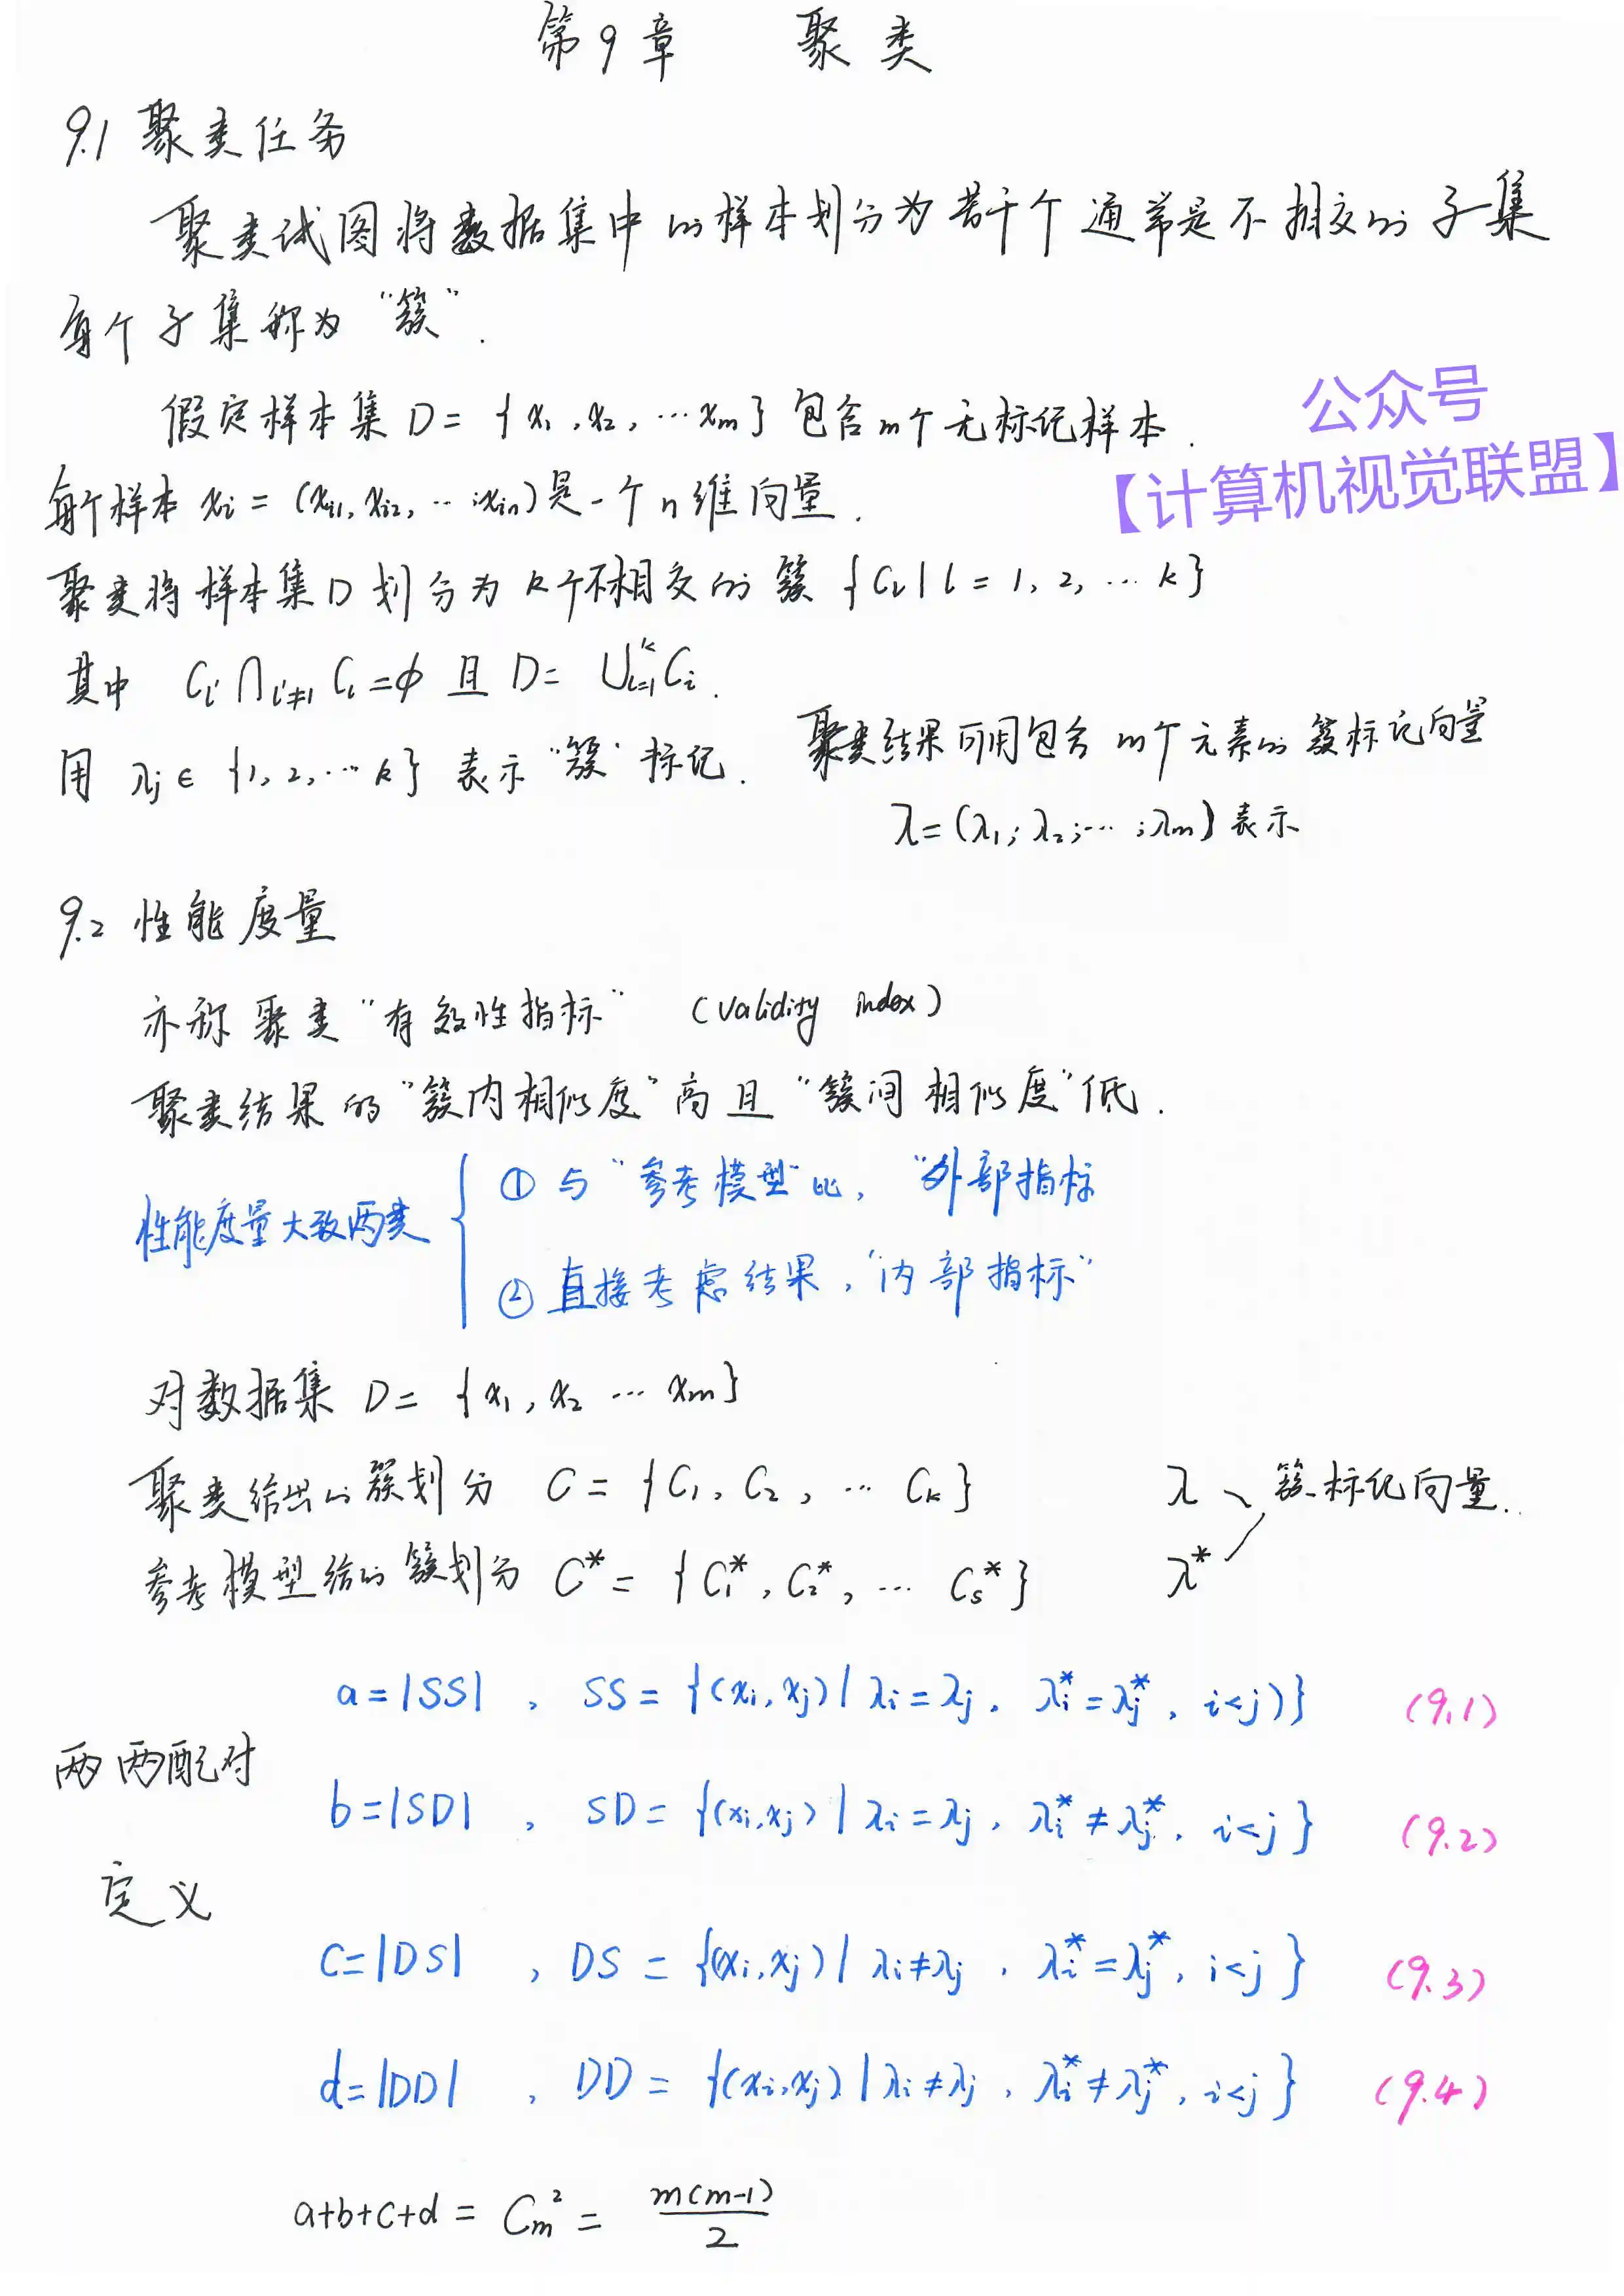 第9章 聚类
9.1 聚类任务
聚类试图将数据集中的样本划分为若干个通常是不相交的子集
每个子集称为“簇”.
假定样本集 D = {x₁, x₂, … xₘ} 包含m个无标记样本.
公众号
每个样本 xᵢ = (xᵢ₁, xᵢ₂, … ; xᵢₙ) 是一个n维向量.
【计算机视觉联盟】
聚类将样本集D划分为k个不相交的簇 {Cₗ | l = 1, 2, … k}
其中 Cₗ' ⋂ₗ'≠ₗ Cₗ = ϕ 且 D = ⋃ₗ₌₁ᵏ Cᵢ.
用 λⱼ ∈ {1, 2, … k} 表示“簇”标记. 聚类结果可用包含m个元素的簇标记向量
λ = (λ₁; λ₂; … ; λₘ) 表示
9.2 性能度量
亦称聚类“有效性指标” (validity index)
聚类结果的“簇内相似度”高且“簇间相似度”低.
性能度量大致两类
① 与“参考模型”比, “外部指标
② 直接考虑结果, “内部指标”
对数据集 D = {x₁, x₂ … xₘ}
聚类给出的簇划分 C = {C₁, C₂, … Cₖ} λ 簇标记向量..
参考模型给的簇划分 C* = {C₁*, C₂*, … Cₛ*} λ*
a = |SS| , SS = {(xᵢ, xⱼ) | λᵢ = λⱼ, λᵢ* = λⱼ*, i<j)} (9.1)
两两配对
b = |SD| , SD = {(xᵢ, xⱼ) | λᵢ = λⱼ, λᵢ* ≠ λⱼ*, i<j} (9.2)
定义
c = |DS| , DS = {(xᵢ, xⱼ) | λᵢ ≠ λⱼ, λᵢ* = λⱼ*, i<j} (9.3)
d = |DD| , DD = {(xᵢ, xⱼ) | λᵢ ≠ λⱼ, λᵢ* ≠ λⱼ*, i<j} (9.4)
a+b+c+d = Cₘ² = m(m-1)/2